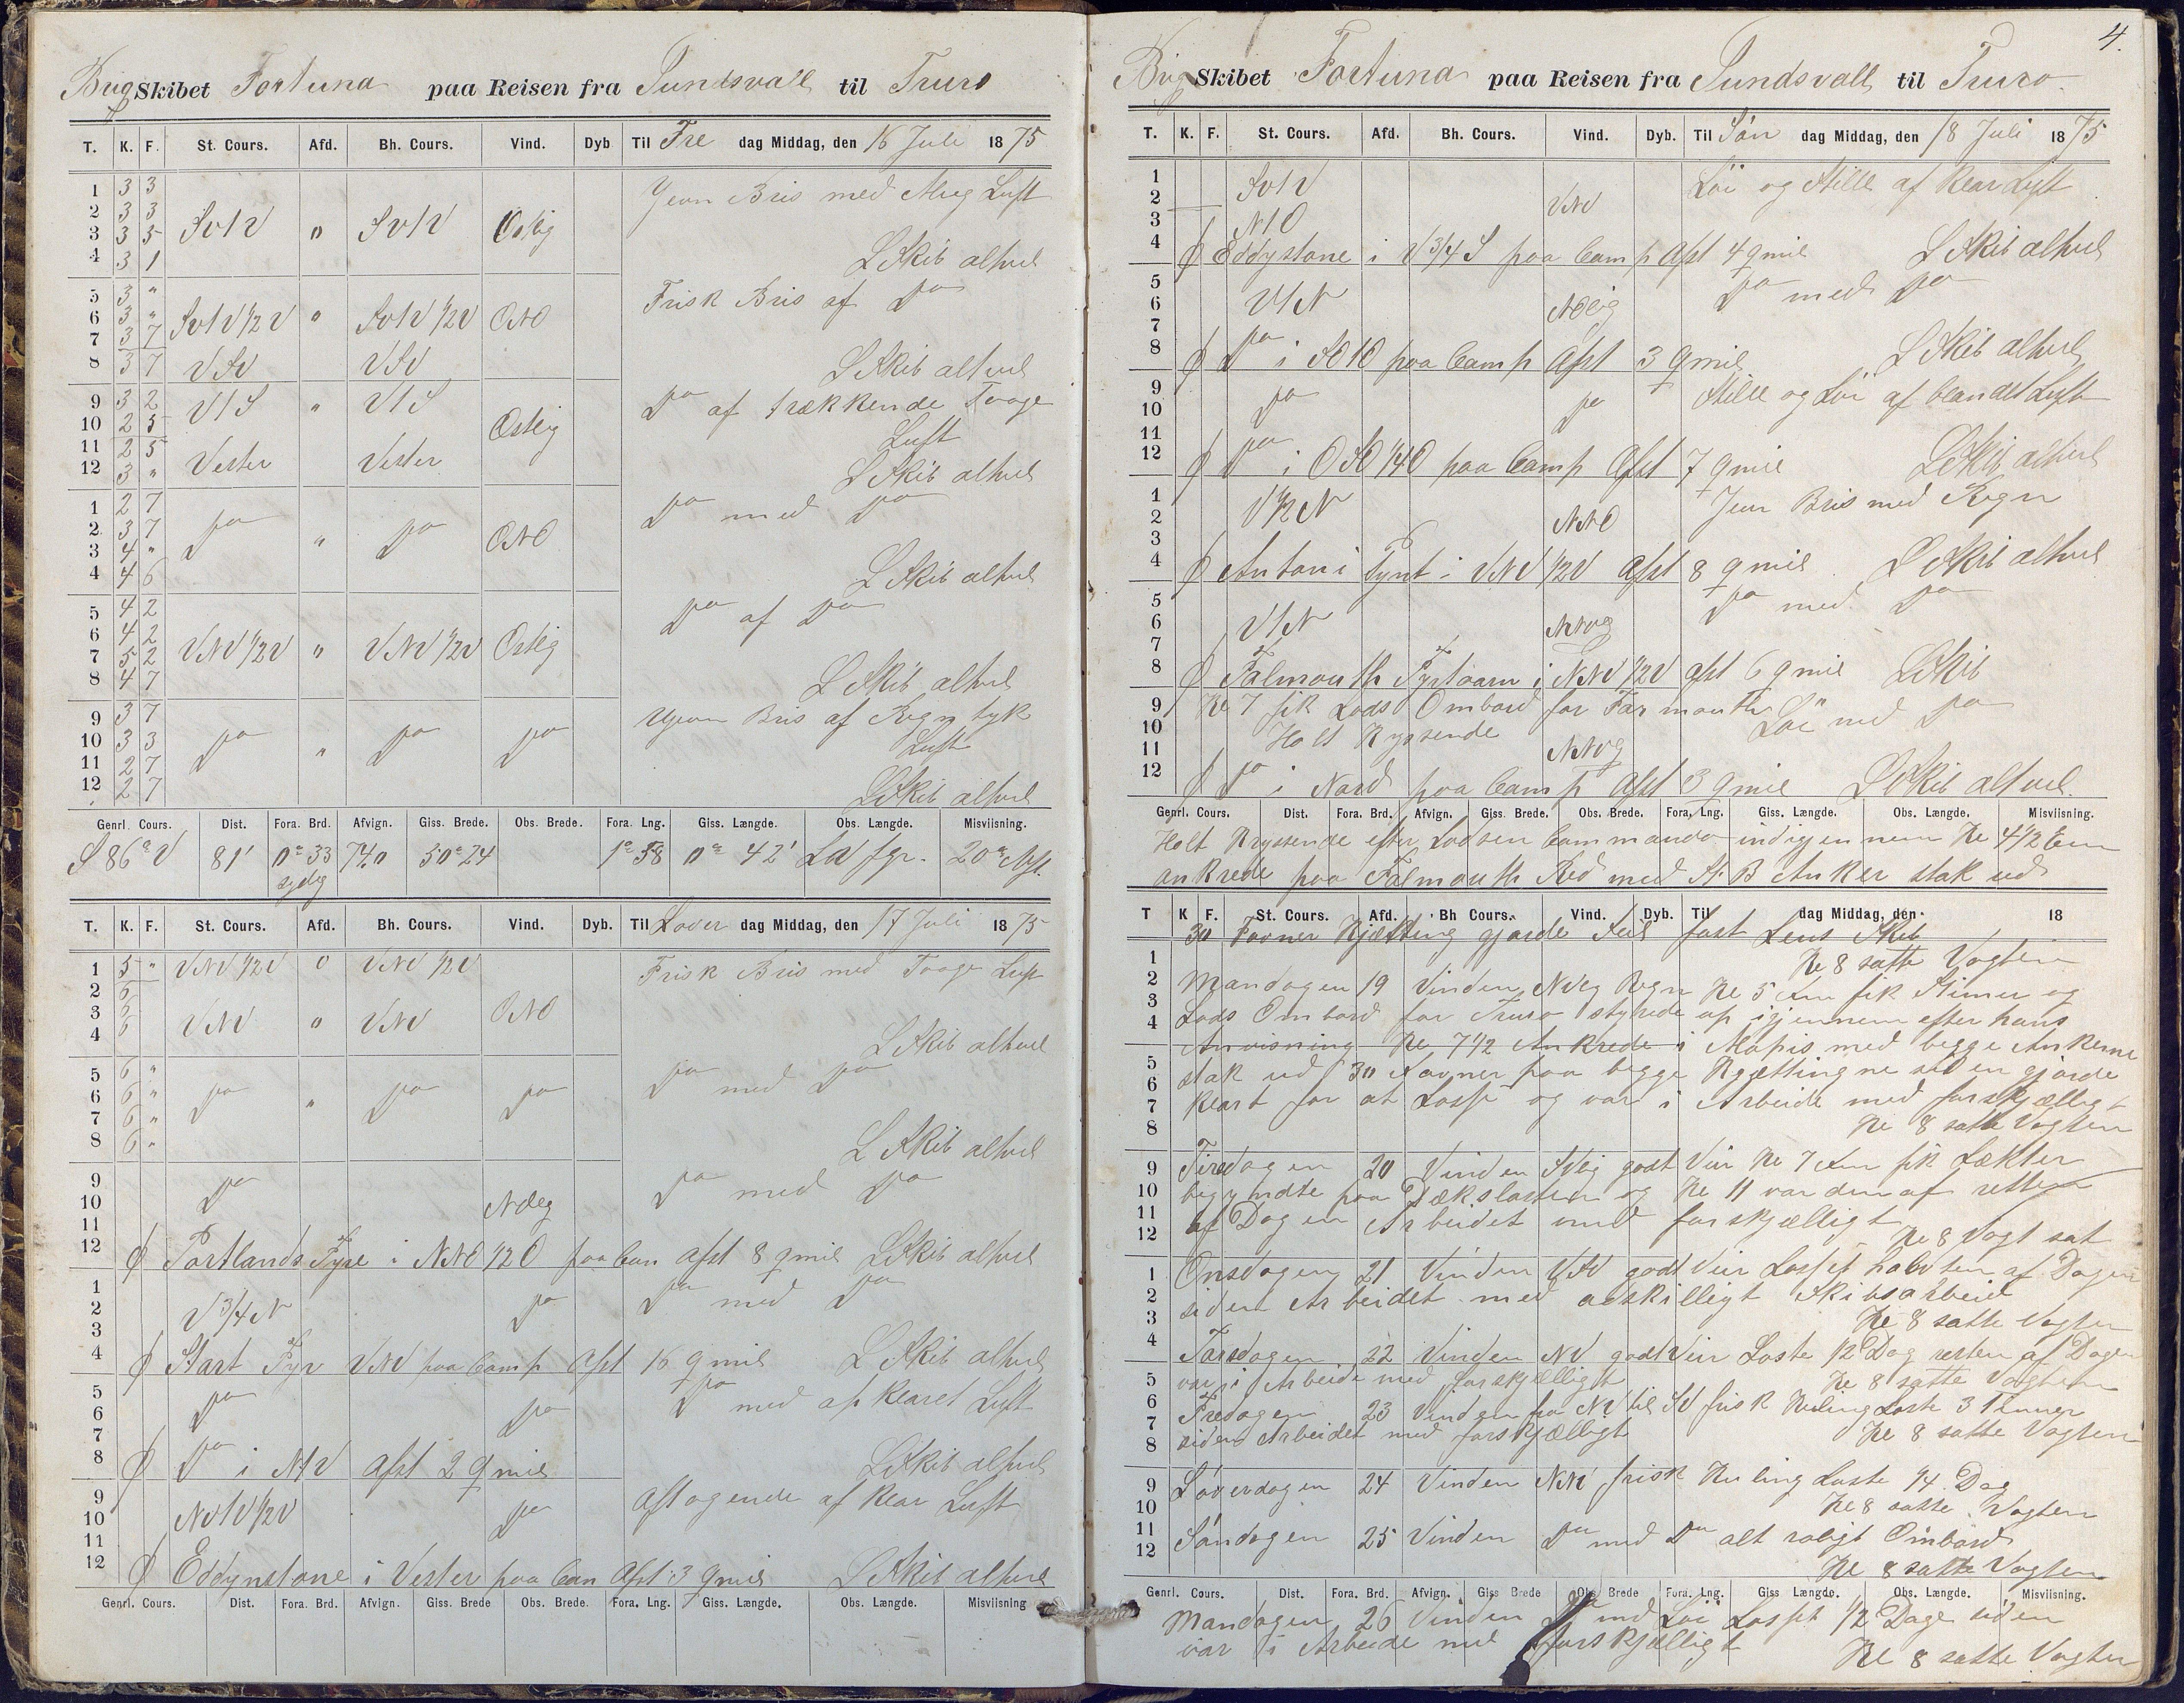 Brig Skibet Fortuna paa Reisen fra Sundsvall til Truro
T. K. F. St. Cours. Afd. Bh. Cours. Vind. Dyb Til Fre dag Middag, den 16 Juli 1875
1 3 3 Jevn Bris med Luft
2 3 3
3 3 5 SvtV " SvtV Østlig
4 3 1 L Skib alt vel
5 3 " Frisk Bris af Do
6 3 " SvtV 1/2 V " SvtV 1/2 V ONO
7 3 7
8 3 7 VSV VSV L Skib alt vel
9 3 2 VtS " VtS Do af trækkende Taage
10 2 5 Østlig Luft
11 2 5 Vester Vester
12 3 " L Skib alt vel
1 2 7 Do med Do
2 3 7 Do " Do ONO
3 4 "
4 4 6 L Skib alt vel
5 4 2 Do af Do
6 4 2
7 5 2 VNV 1/2 V " VNV 1/2 V Østlig
8 4 7 L Skib alt vel
9 3 7 Jevn Bris af Regn tyk
10 3 3 Do " Do Do Luft
11 2 7
12 2 7 L Skib alt vel
Genrl. Cours. Dist. Fora. Brd. Afvign. Giss. Brede. Obs. Brede. Fora. Lng. Giss. Længde. Obs. Længde. Misviisning.
S 86° V 81' 0° 33 sydlig 74.0 50° 24 1° 58 0° 42' 20°
T. K. F. St. Cours. Afd. Bh. Cours. Vind. Dyb. Til Løver dag Middag, den 17 Juli 1875
1 5 " VNV 1/2 V 0 VNV 1/2 V Frisk Bris med Taage Luft
2 6
3 6 VNV " VNV ONO
4 6 L Skib alt vel
5 6 " Do med Do
6 6 " Do " Do Do
7 6 "
8 6 " L Skib alt vel
9 Do Do med Do
10 Ndlig
11
12 Portlands Fyre i NNO 1/2 O paa Com afst 8 qmil L Skib alt vel
1 Do med Do
2 V 3/4 N Do
3
4 Start Fyr VNV paa Comp Afst 16 qmil L Skib alt vel
5 Do Do med afklaret Luft
6 Do
7
8 Do i NtV afst 2 qmil L Skib alt vel
9 Aftagende af klar Luft
10 NvtV 1/2 V Do
11
12 Eddynstone i Vester paa Com Afst 3 qmil L Skib alt vel
Genrl. Cours. Dist. Fora. Brd. Afvign. Giss. Brede Obs. Brede. Fora. Lng. Giss. Længde. Obs. Længde. Misviisning
4.
Brig Skibet Fortuna paa Reisen fra Sundsvall til Truro
T. K. F. St. Cours. Afd. Bh. Cours. Vind. Dyb. Til Søn dag Middag, den 18 Juli 1875
1 SvtV Löi og Stille af klar Luft
2 VNV
3 NtO
4 Eddystone i V 3/4 S paa Comp Afst 4 qmil L Skib alt vel
5 Do med Do
6 VtN Ndlig
7
8 Do i SOtO paa Comp Afst 3 qmil L Skib alt vel
9 Do Do Stille og Löi af blandet Luft
10
11
12 Do i OSO 1/4 O paa Comp Afst 7 qmil L Skib alt vel
1 V 1/2 N Jevn Bris med Regn
2 NNO
3
4 Antoni Pynt i VNV 1/2 V Afst 8 qmil L Skib alt vel
5 Do med Do
6 VtN
7
8 Falmouth Fyrtaarn i NNV 1/2 V afst 6 qmil L Skib
9 Kl 7 fik Lods Ombord for Farmouth Löi med Do
10 Holt Kryssende
11
12 Do i Nord paa Comp Afst 3 qmil L Skib alt vel.
Genrl. Cours. Dist. Fora. Brd. Afvign. Giss. Brede. Obs. Brede. Fora. Lng. Giss. Længde. Obs. Længde. Misviisning.
Holt Kryssende efter Lodsen Commando indigjennem Kl 4 1/2 Em
ankrede paa Falmouth Red med St B Anker stak ud
T K F. St. Cours. Afd. Bh Cours. Vind. Dyb. Til dag Middag, den 18
30 Favner Kjætting gjorde Seil fast Lens Skib
1 Kl 8 satte Vagten
2 Mandagen 19 Vinden NVlig Regn Kl 5 Em fik Stimer og
3 Lods Ombord for Truro styrede op igjennem efter hans
4 Anvisning Kl 7 1/2 Ankrede i Malpis med begge Ankerne
5 stak ud 30 Favner paa begge Kjættingne siden gjorde
6 klart for at Losse og var i Arbeide med forskjælligt
7
8 Kl 8 satte Vagten
9 Tirsdagen 20 Vinden SVlig godt Veir Kl 7 Em fik Lækter
10 begyndte paa Dækslasten og Kl 11 var den af resten
11 af Dagen Arbeidet med forskjælligt
12 Kl 8 Vagt sat
1 Onsdagen 21 Vinden VSV godt Veir Losset halvten af Dagen
2 siden Arbeidet med adskilligt Skibsarbeid
3 Kl 8 satte Vagten
4 Torsdagen 22 Vinden NV godt Veir Loste 1/2 Dag resten af Dagen
5 var i Arbeide med forskjælligt Kl 8 satte Vagten
6 Fredagen 23 Vinden fra NV til SV frisk Kuling Loste 3 Timer
7 siden Arbeidet med forskjælligt
8 Kl 8 satte Vagten
9 Løverdagen 24 Vinden NNV frisk Kuling Loste 1/4 Dag
10 Kl 8 satte Vagten
11 Søndagen 25 Vinden Do med Do alt roligt Ombord
12 Kl 8 satte Vagten
Genrl. Cours. Dist. Fora. Brd. Afvign. Giss Brede Obs. Brede Fora. Lng. Giss Længde. Obs. Længde. Misviisning.
Mandagen 26 Vinden Do med Löi Losset 1/2 Dage siden
var i Arbeide med forskjælligt
Kl 8 satte Vagten